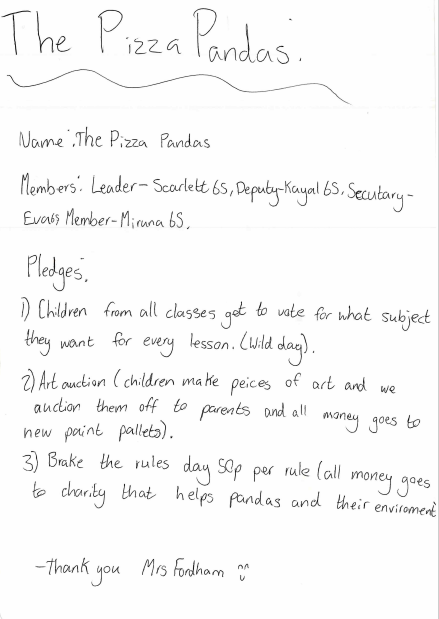 The Pizza Pandas.
Name: The Pizza Pandas
Members: Leader- Scarlett 6S, Deputy-Kayal 6S, Secutary-
Eva6S Member-Miruna 6S.
Pledges:
1) Children from all classes get to vote for what subject
they want for every lesson. (Wild day).
2) Art auction (children make peices of art and we
auction them off to parents and all money goes to
new paint pallets).
3) Brake the rules day 50p per rule (all money goes
to charity that helps pandas and their enviroment
-Thank you Mrs Fordham